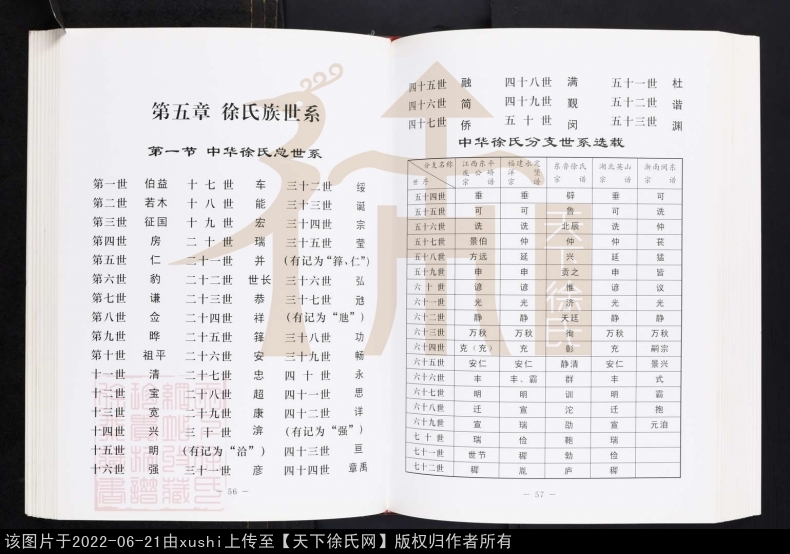 第五章 徐氏族世系
第一节 中华徐氏总世系
第一世 伯益 十七世 车 三十二世 绥
第二世 若木 十八世 能 三十三世 诞
第三世 征国 十九世 宏 三十四世 宗
第四世 房 二十世 瑞 三十五世 莹
第五世 仁 二十一世 并 (有记为“箨、仁”)
第六世 豹 二十二世 世长 三十六世 弘
第七世 谦 二十三世 恭 三十七世
第八世 佥 二十四世 祥
第九世 晔 二十五世 箨 三十八世 功
第十世 祖平 二十六世 安 三十九世 畅
十一世 清 二十七世 忠 四十世 永
十二世 宝 二十八世 超 四十一世 思
十三世 宽 二十九世 康 四十二世 详
十四世 兴 三十世 渀 (有记为“强”)
十五世 明 (有记为“治”) 四十三世 亘
十六世 强 三十一世 彦 四十四世 章禹
－ 56 －
四十五世 融 四十八世 满 五十一世 杜
四十六世 简 四十九世 觐 五十二世 谐
四十七世 侨 五十世 闵 五十三世 渊
中华徐氏分支世系选载
分支名称 世序 江西东平 宗谱 福建永定 宗谱 东鲁徐氏 宗谱 湖北英山 宗谱 浙南闽东 宗谱
五十四世 垂 垂 辟 垂 可
五十五世 可 可 鲁 可 洗
五十六世 洗 洗 北辰 洗 仲
五十七世 景伯 仲 仲 仲 苌
五十八世 方远 延 兴 延 猛
五十九世 申 申 贡之 申 皆
六十世 谚 谚 惟 谚 议
六十一世 光 光 济 光 光
六十二世 静 静 天廷 静 静
六十三世 万秋 万秋 万秋 万秋
六十四世 克（充） 充 彭 充 嗣宗
六十五世 安仁 安仁 静清 安仁 景兴
六十六世 丰 丰、霸 群 丰 式
六十七世 明 明 训 明 霸
六十八世 迁 宣 沱 迁 抱
六十九世 宣 瑞 劭 宣 元洎
七十世 瑞 俭 瑞
七十一世 世节 穉 勃 俭
七十二世 穉 胤 庐 穉
－ 57 －
天下徐氏
该图片于2022-06-21由xushi上传至【天下徐氏网】版权归作者所有